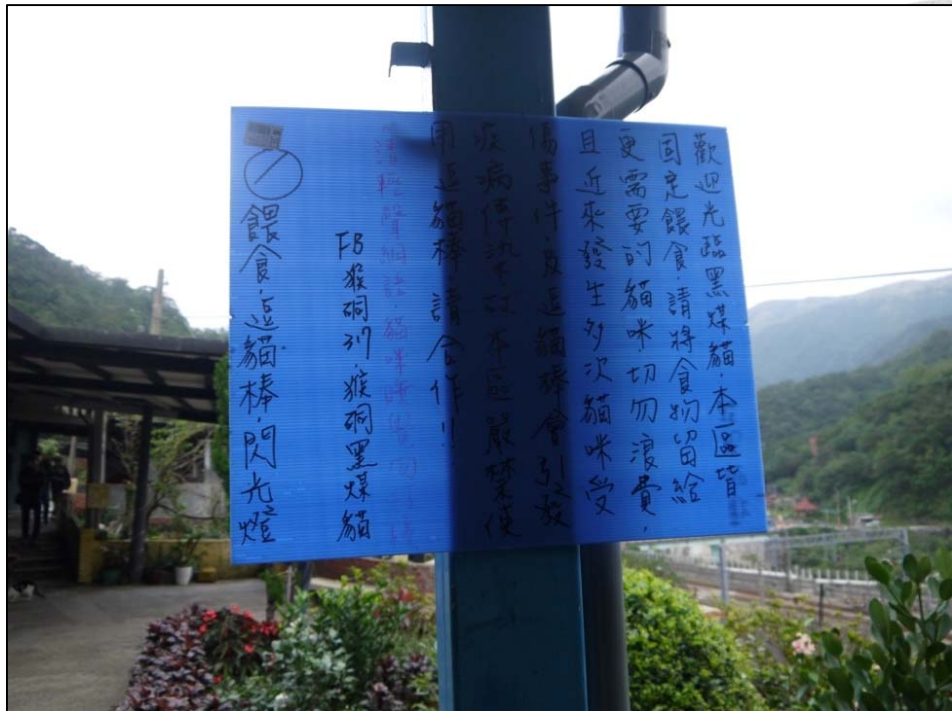 歡迎光臨黑煤貓.本區皆
固定餵食.請將食物留給
更需要的貓咪.切勿浪費.
且近來發生多次貓咪受
傷事件.及逗貓棒會引發
疾病傳染.故本區嚴禁使
用逗貓棒 請合作!!
請輕聲細語 貓咪時
FB 猴硐317.猴硐黑煤貓
餵食.逗貓棒.閃光燈